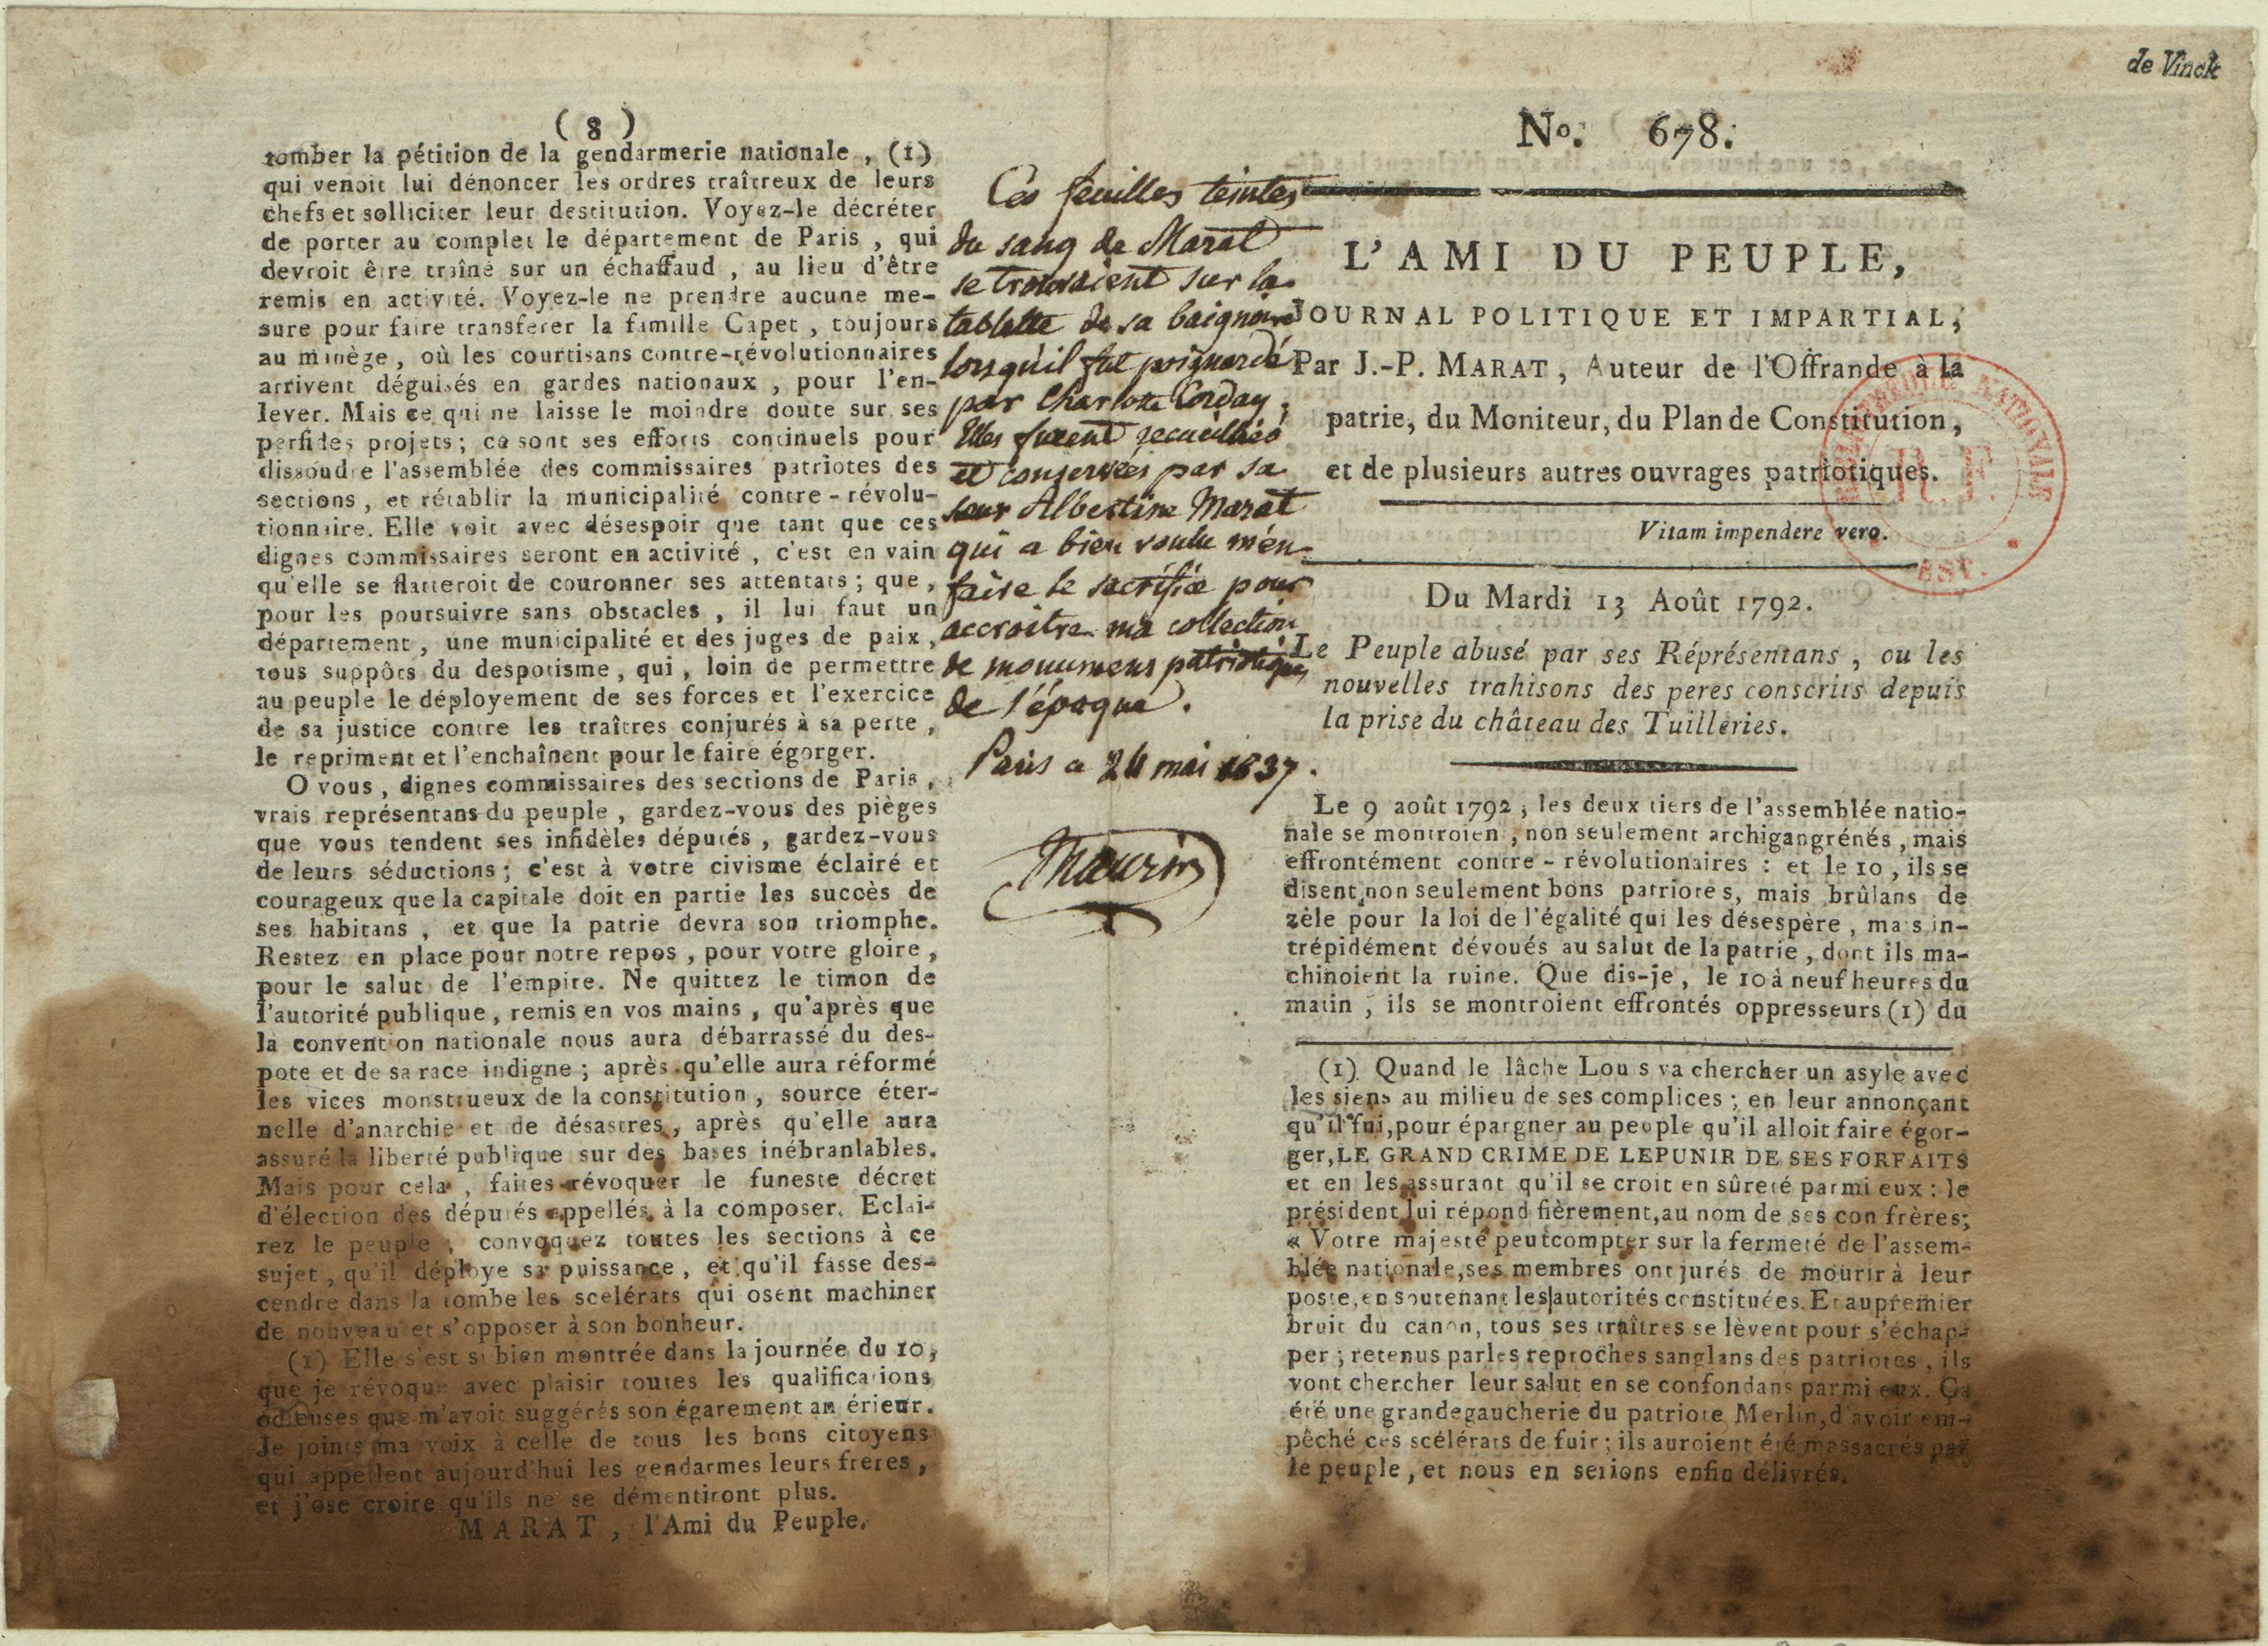 de Vinck
( 8 )
tomber la pétition de la gendarmerie nationale , (1)
qui venoit lui dénoncer les ordres traîtreux de leurs
chefs et solliciter leur destitution. Voyez-le décréter
de porter au complet le département de Paris , qui
devroit être traîné sur un échaffaud , au lieu d'être
remis en activité. Voyez-le ne prendre aucune me-
sure pour faire transférer la famille Capet , toujours
au manège, où les courtisans contre-révolutionnaires
arrivent déguisés en gardes nationaux , pour l'en-
lever. Mais ce qui ne laisse le moindre doute sur ses
perfides projets; ce sont ses efforts continuels pour
dissoudre l'assemblée des commissaires patriotes des
sections, et rétablir la municipalité contre-révolu-
tionnaire. Elle voit avec désespoir que tant que ces
dignes commissaires seront en activité , c'est en vain
qu'elle se flatteroit de couronner ses attentats; que,
pour les poursuivre sans obstacles , il lui faut un
département, une municipalité et des juges de paix,
tous suppôts du despotisme, qui, loin de permettre
au peuple le déployement de ses forces et l'exercice
de sa justice contre les traîtres conjurés à sa perte,
le repriment et l'enchaînent pour le faire égorger.
O vous, dignes commissaires des sections de Paris,
vrais représentans du peuple, gardez-vous des pièges
que vous tendent ses infidèles députés, gardez-vous
de leurs séductions; c'est à votre civisme éclairé et
courageux que la capitale doit en partie les succès de
ses habitans , et que la patrie devra son triomphe.
Restez en place pour notre repos, pour votre gloire,
pour le salut de l'empire. Ne quittez le timon de
l'autorité publique, remis en vos mains, qu'après que
la convention nationale nous aura débarrassé du des-
pote et de sa race indigne; après qu'elle aura réformé
les vices monstrueux de la constitution, source éter-
nelle d'anarchie et de désastres, après qu'elle aura
assuré la liberté publique sur des bases inébranlables.
Mais pour cela , faites révoquer le funeste décret
d'élection des députés appellés à la composer. Eclai-
rez le peuple , convoquez toutes les sections à ce
sujet, qu'il déploye sa puissance, et qu'il fasse des-
cendre dans la tombe les scelérats qui osent machiner
de nouveau et s'opposer à son bonheur.
(1) Elle s'est si bien montrée dans la journée du 10,
que je révoque avec plaisir toutes les qualifications
odieuses que m'avoit suggérés son égarement antérieur.
Je joints ma voix à celle de tous les bons citoyens
qui appellent aujourd'hui les gendarmes leurs freres,
et j'ose croire qu'ils ne se démentiront plus.
MARAT, l'Ami du Peuple.
Ces feuilles teintes
du sang de Marat
se trouvaient sur la
tablette de sa baignoire
lorsqu'il fut poignardé
par Charlotte Corday;
Elles furent recueillies
et conservées par sa
sœur Albertine Marat
qui a bien voulu m'en
faire le sacrifice pour
accroitre ma collection
de monumens patriotiques
de l'époque.
Paris ce 24 mai 1837.
Maurin
No. 678.
L'AMI DU PEUPLE,
JOURNAL POLITIQUE ET IMPARTIAL,
Par J.-P. MARAT, Auteur de l'Offrande à la
patrie, du Moniteur, du Plan de Constitution,
et de plusieurs autres ouvrages patriotiques.
Vitam impendere vero.
BIBLIOTHEQUE NATIONALE
R.F
EST.
Du Mardi 13 Août 1792.
Le Peuple abusé par ses Réprésentans, ou les
nouvelles trahisons des peres conscrits depuis
la prise du château des Tuilleries.
Le 9 août 1792, les deux tiers de l'assemblée natio-
nale se montroien , non seulement archigangrénés, mais
effrontément contre-révolutionaires : et le 10, ils se
disent non seulement bons patriotes, mais brûlans de
zèle pour la loi de l'égalité qui les désespère, mais in-
trépidément dévoués au salut de la patrie, dont ils ma-
chinoient la ruine. Que dis-je, le 10 à neuf heures du
matin , ils se montroient effrontés oppresseurs (1) du
(1) Quand le lâche Lou s va chercher un asyle avec
les siens au milieu de ses complices; en leur annonçant
qu'il fui, pour épargner au peuple qu'il alloit faire égor-
ger, LE GRAND CRIME DE LE PUNIR DE SES FORFAITS
et en les assurant qu'il se croit en sûreté parmi eux : le
président lui répond fièrement, au nom de ses confrères;
« Votre majesté peut compter sur la fermeté de l'assem-
blée nationale, ses membres ont jurés de mourir à leur
poste, en soutenant les autorités constituées. Et au premier
bruit du canon, tous ses traîtres se lèvent pour s'échap-
per; retenus par les reproches sanglans des patriotes, ils
vont chercher leur salut en se confondans parmi eux. Ça
été une grande gaucherie du patriote Merlin, d'avoir em-
pêché ces scélérats de fuir; ils auroient été massacrés par
le peuple, et nous en serions enfin délivrés.